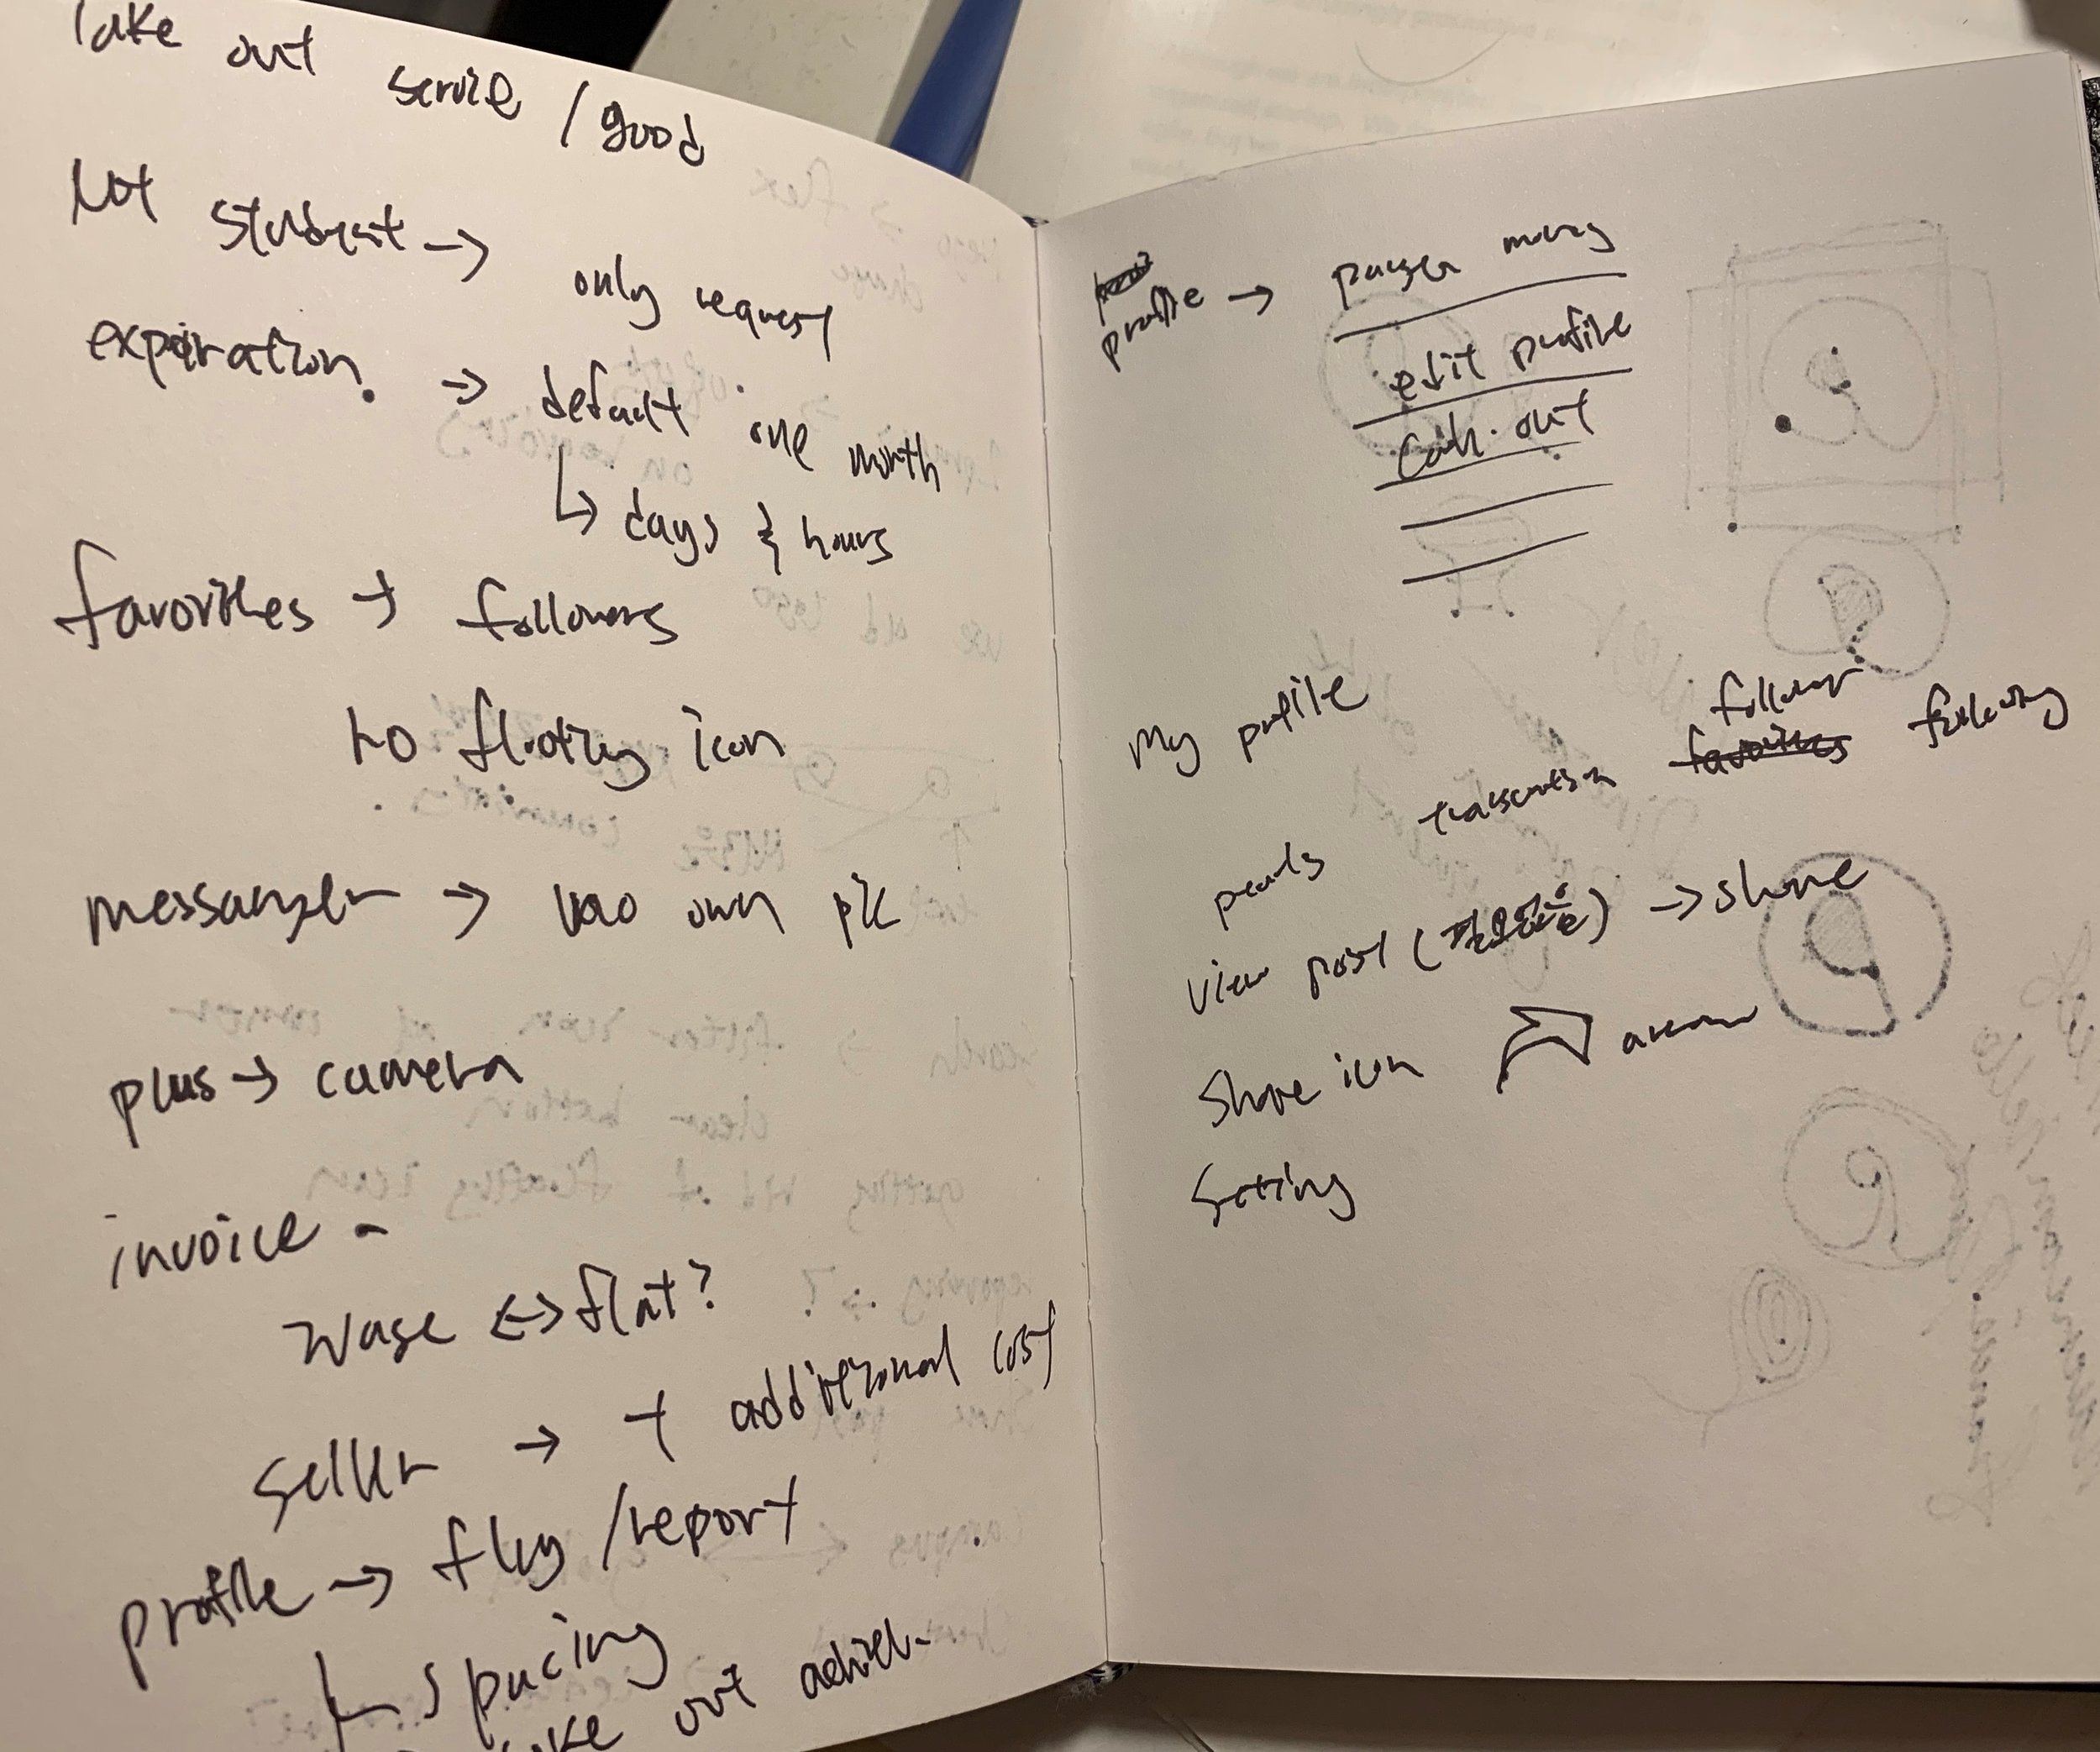 Take out service / good
Not student →
only request
expiration. → default one month
↳ days & hours
favorites → followers
no floating icon
messanger → own pic
plus → camera
invoice -
wage ↔ flat?
seller → + additional cost
profile → flag / report
spacing
take out
profile →
edit profile
Cash out
My profile
transaction
follower
favorites
following
view post ( ) → share
Share icon arrow
Setting